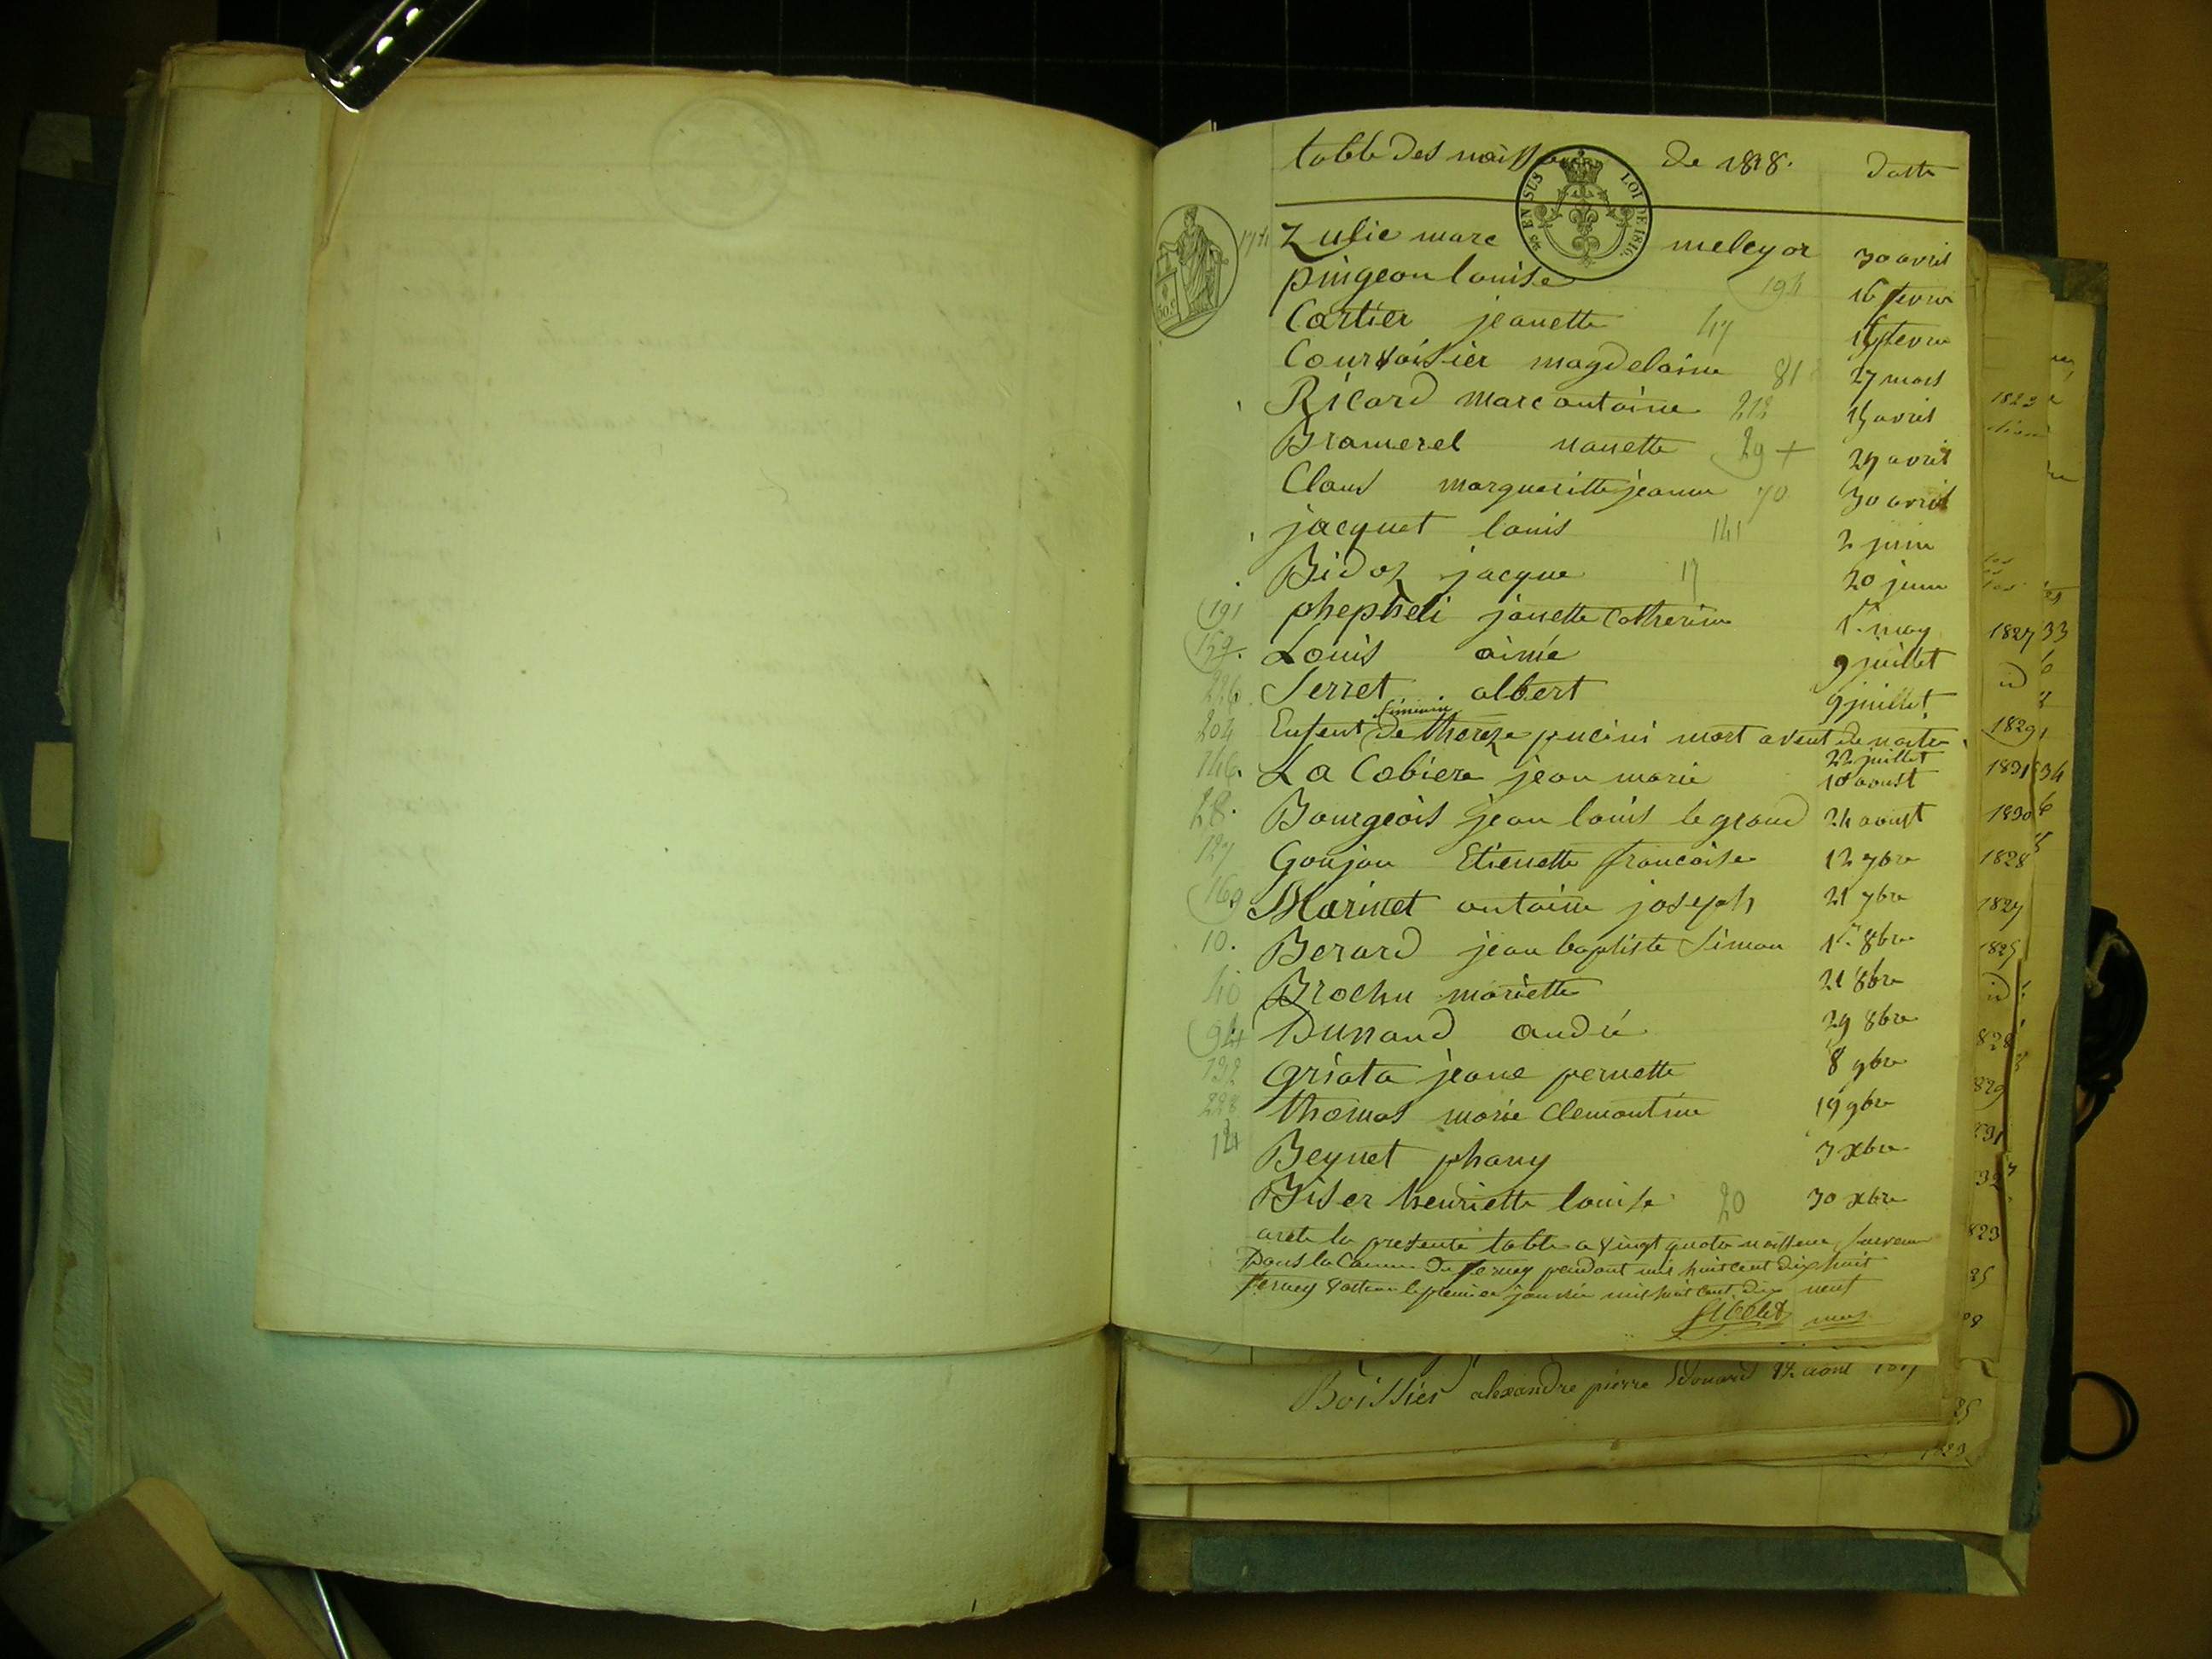 table des naissa de 1818. date
EN SUS LOI DE 1816.
50 c
Zulie marc melcyor 30 avril
pingeon louise 194 16 fevrie
Cartier jeanette 47 fevrie
Courvoisier magdelaine 81 27 mars
Ricard marc antoine 212 15 avril
Bramerel nanette 29 + 29 avril
Claus margueritte jeanne 70 30 avril
jacquet louis 141 2 juin
Bidoz jacque 17 20 juin
191 phepheli janette Catherine 1r. may
159. Louis aimé 9 juillet
226. Serret albert 9 juillet
204 Enfent de thereze pucini mort avent de naitre
22 juillet
146. La Cobiere jean marie 10 aoust
28. Bourgeois jean louis le grand 24 aoust
127 Goujon Etienette francoise 12 7bre
169 Marinet antoine joseph 21 7bre
10. Berard jean baptiste Simon 1r. 8bre
40 Brochu mariette 21 8bre
94 Dunand andré 29 8bre
132 Griata jeane pernette 8 9bre
228 thomas marie Clemontine 19 9bre
14 Beynet phany 3 xbre
Biser henriette louise 20 30 xbre
arete la presente table a vingt quatre naissence survenu
Dans la Comune de ferney pendant mil huit cent dix huit
ferney Voltaire le premier janvier mil huit cent dix neuf
Boissier alexandre pierre Edouard 12 aout
1823
1827 33
id
1829
1831 34
1830
1828
1827
1825
id
1823